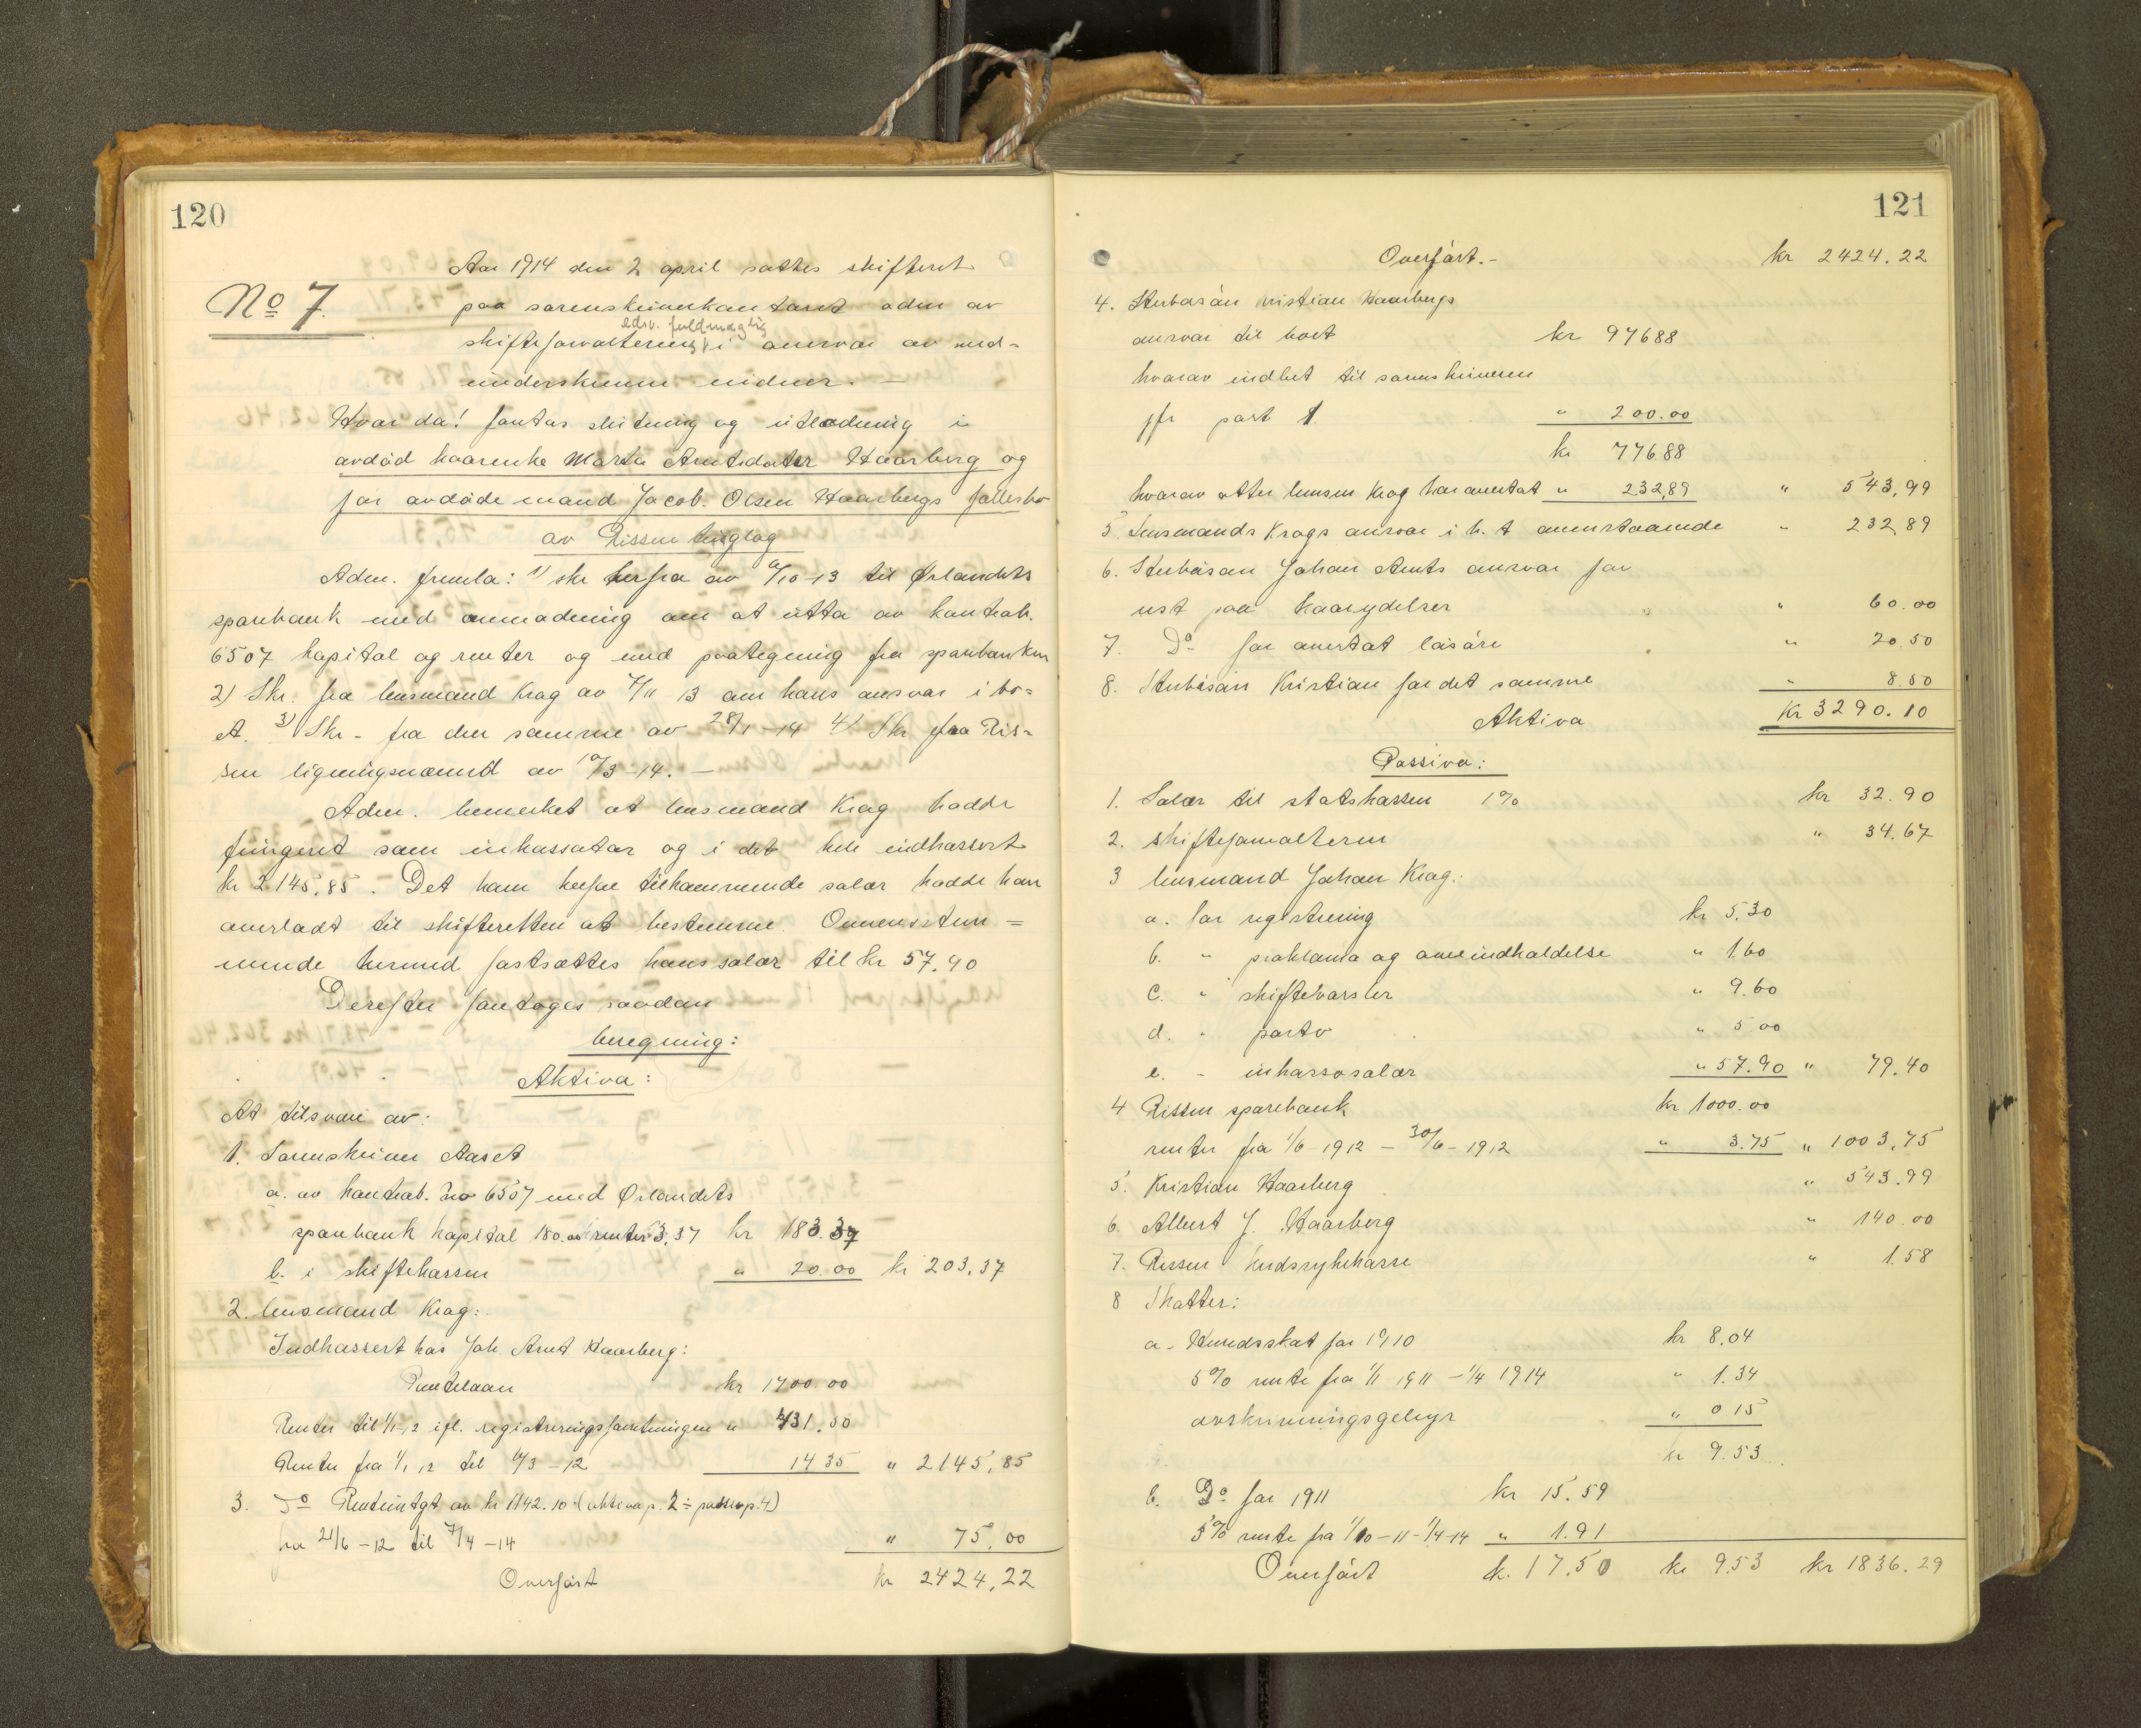 120
Aar 1914 den 2 april sattes skifteret
No 7.
paa sorenskriverkontoret aden av
edsv. fuldmægtig
skifteforvalteren i ansvar av med-
underskrevne vidner. -
Hvor da! foretas slutning og utlodning i
avdöd kaarenke Marta Arntsdatter Haarberg og
før avdöde mand Jacob Olsen Haarbergs fællesbo
av Rissen tinglag
Adm. fremla: 1) skr herfra av 6/10-13 til Ørlandets
sparebank med anmodning om at utta av kontrab.
6507 kapital og renter og med paategning fra sparebanken
2) Skr. fra lensmand Krag av 7/11 13 om hans ansvar i bo-
et. 3) Skr - fra den samme av 28/1-14 4) Skr fra Ris-
sen ligningsnævnd av 10/3-14. -
Adm. bemerket at lensmand Krag hadde
fungeret som inkassator og i det hele indkassert
kr 2145,85. Det ham herfor tilkommende salær hadde han
overladt til skifteretten at bestemme. Overensstem-
mende hermed fastsættes hans salær til kr 57,90
Derefter foretoges saadan
beregning:
Aktiva:
At tilsvare av:
1. Sorenskriver Aaset
a. av kontrab. No 6507 med Ørlandets
sparebank kapital 180.00 renter 3,37 kr 183.37
b. i skiftekassen " 20.00 kr 203,37
2. lensmand Krag:
Indkassert hos Joh. Arnt Haarberg:
Pantelaan kr 1700.00
Renter til 1/1-12 ifl. registreringsforretningen " 431.50
Renter fra 1/1 12 til 1/3-12 14 35 " 2145,85
3. Do Renteutgt av kr 1142.10 (aktiva p. 2 ÷ passiva p. 4)
fra 21/6-12 til 7/4-14 " 75,00
Overført kr 2424,22
121
Overført.- kr 2424.22
4. Sterbosøn Kristian Haarbergs
ansvar til boet kr 97688
hvorav indbet til sorenskriveren
jfr post 1 " 200.00
kr 776.88
hvorav atter lensm Krag har overtat " 232,89 " 543,99
5. Lensmands Krags ansvar i h. t ovenstaaende " 232,89
6. Sterbøsøn Johan Arnts ansvar for
rest paa kaarydelser " 60.00
7. Do for overtat løsøre " 20.50
8. Sterbøsøn Kristian for det samme " 8.50
Aktiva Kr 3290.10
Passiva:
1. Salær til statskassen 1% kr 32.90
2. skifteforvalteren " 34.67
3 lensmand Johan Krag:
a. for registrering kr 5.30
b. " proklama og avertindholdelse " 1.60
c. " skiftevarsler " 9.60
d. " porto " 5 00
e. - inkassosalær " 57.90 " 79.40
4 Rissen sparebank kr 1000.00
renter fra 1/6 1912 - 30/6-1912 " 3.75 " 1003,75
5. Kristian Haarberg " 543.99
6. Albert J. Haarberg " 140.00
7. Rissen kredssykekasse " 1.58
8 Skatter:
a. Herredsskat for 1910 kr 8.04
5% rente fra 1/1 1911 - 1/4 1914 " 1.34
avskrivningsgebyr " 0 15
kr 9.53
b. Do for 1911 kr 15.59
5% rente fra 1/10-11 - 1/4-14 " 1.91
Overført kr. 17.50 kr 9.53 kr 1836.29